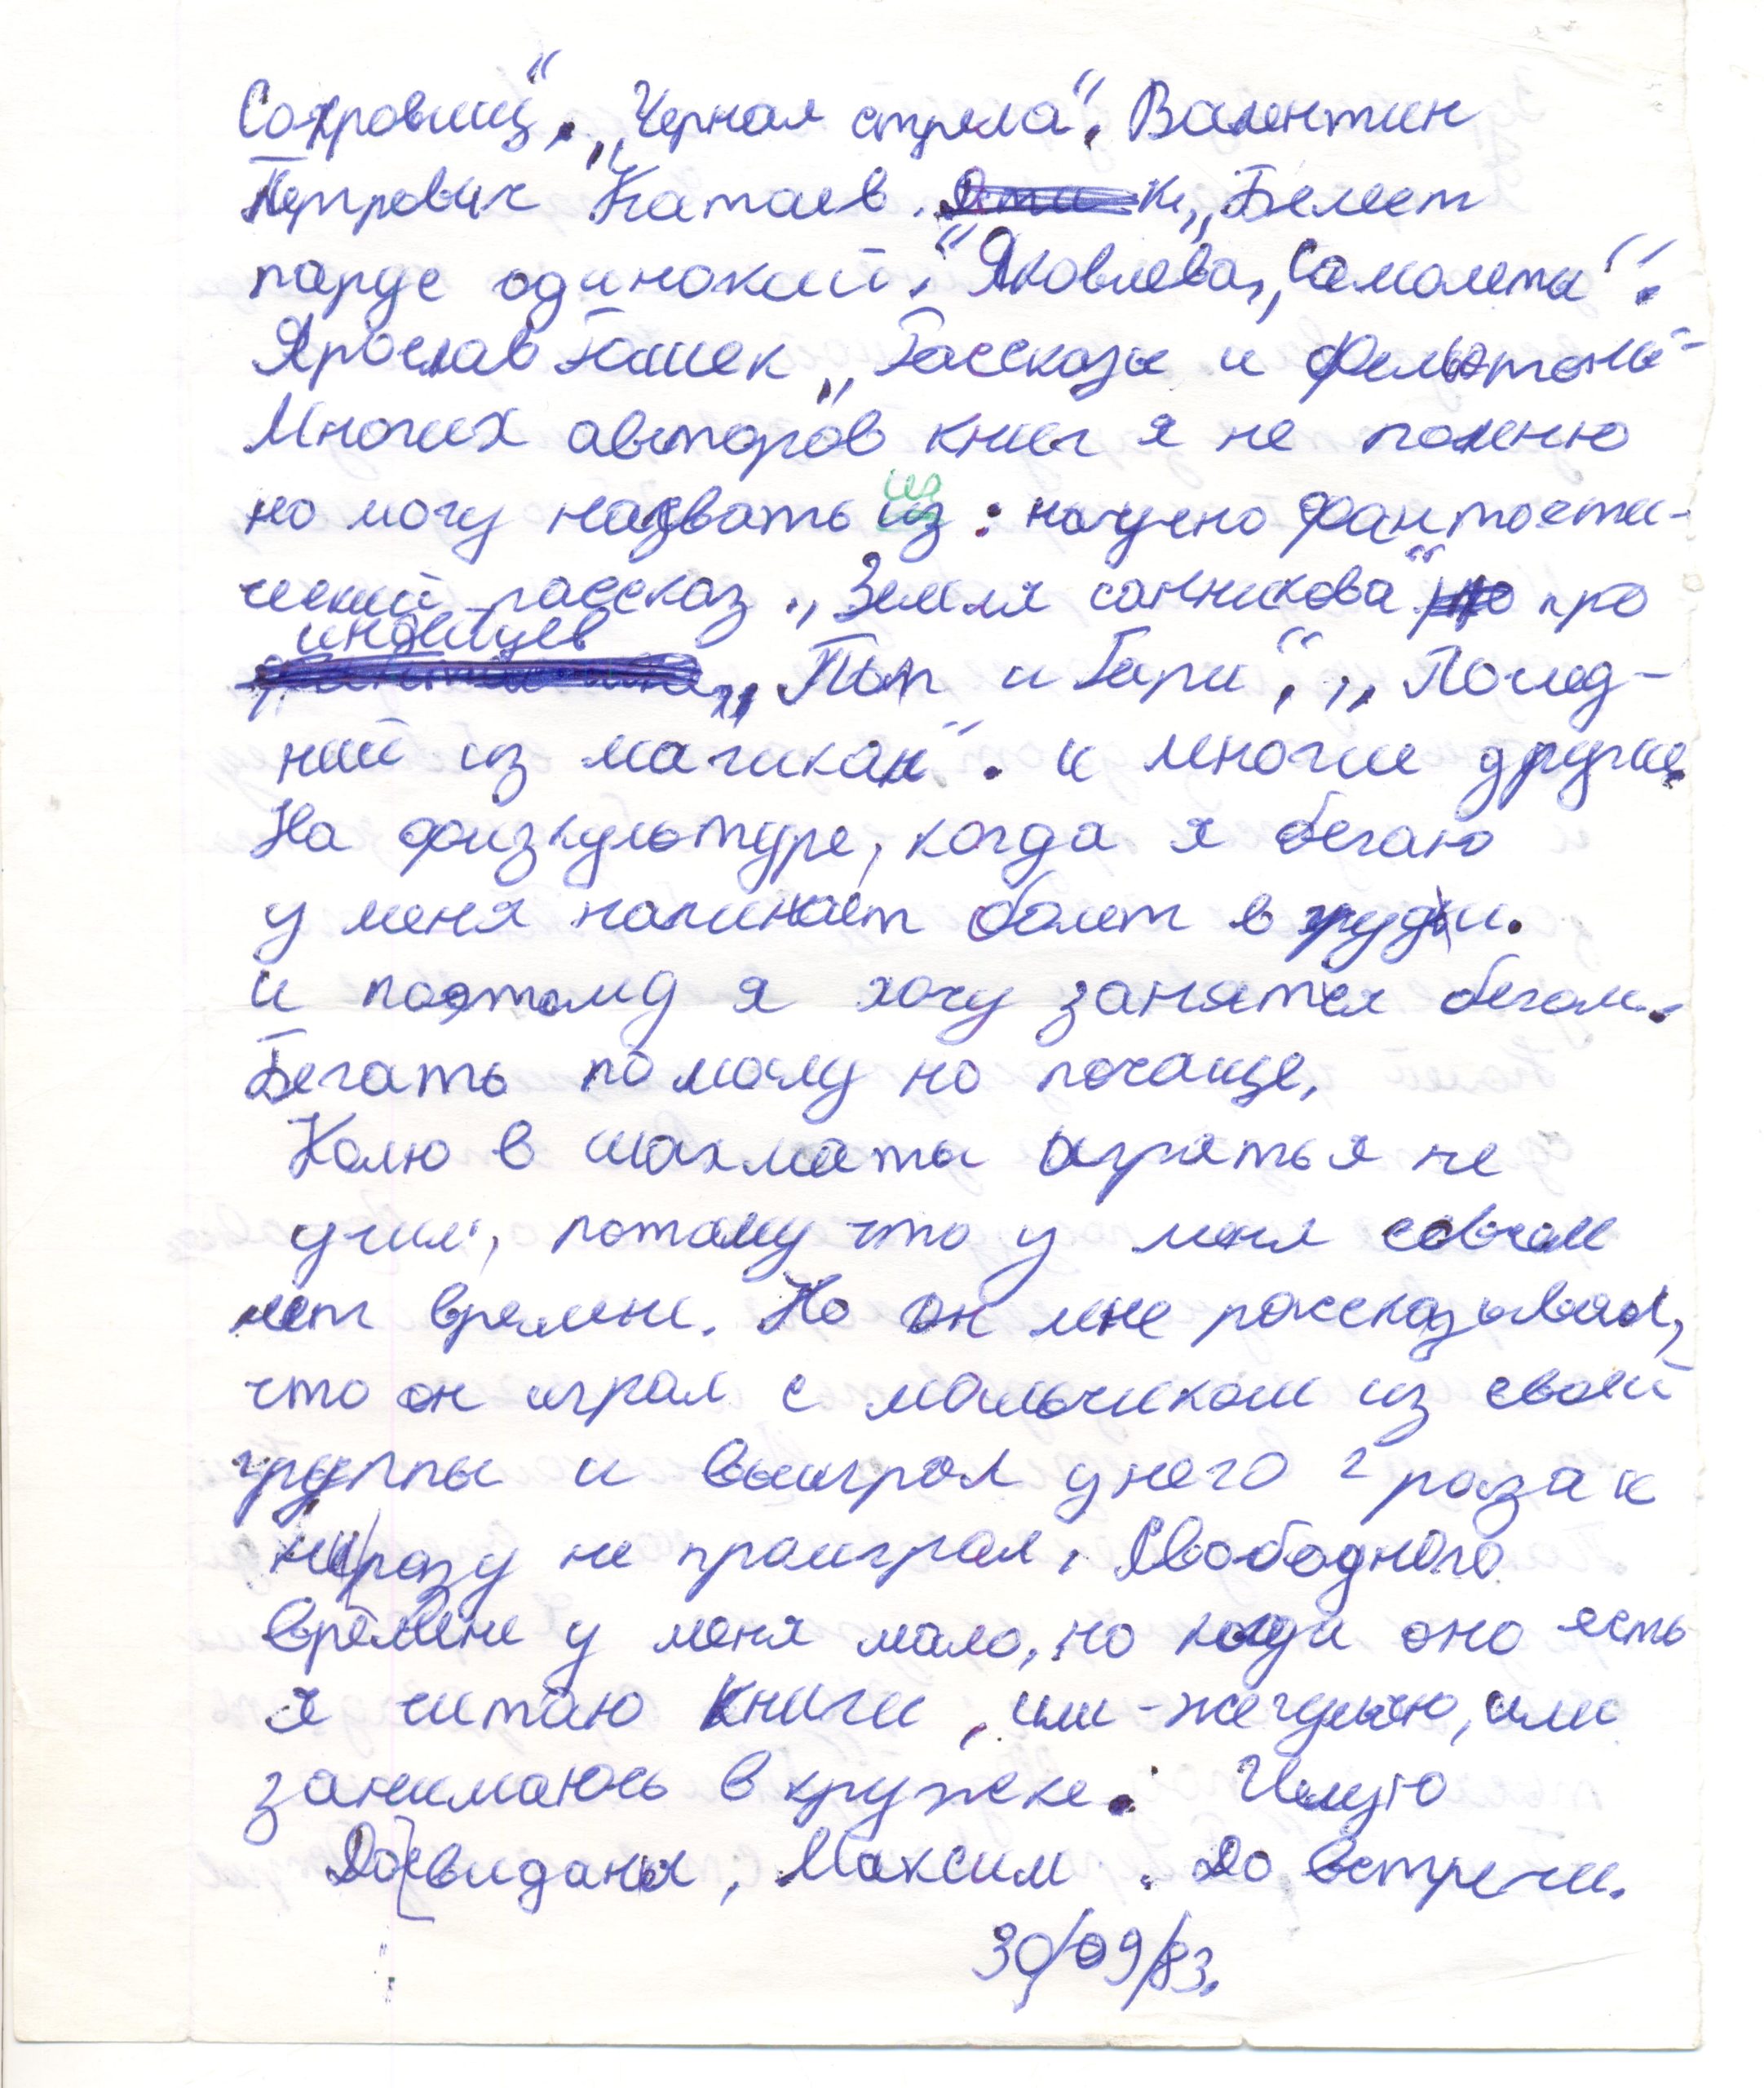 Сокровищ“. „Черная стрела“. Валентин
Петрович Катаев. „Белеет
парус одинокий“. Яковлева „Самолеты“.
Ярослав Гашек „Рассказы и фельетоны“
Многих авторов книг я не помню
но могу назвать из : научно фантасти-
ческий рассказ „Земля санникова“ про
индейцев
„Пит и Гари“, „Послед-
ний из магикан“. и многие другие.
На физкультуре, когда я бегаю
у меня начинает болет в груди.
и поэтому я хочу занятся бегом.
Бегать помалу но почаще,
Колю в шахматы играть я не
учил, потому что у меня совсем
нет времени. Но он мне рассказывал,
что он играл с мальчиком из своей
группы и выиграл у него 2 раза и
ниразу не проиграл. Свободного
времени у меня мало, но когда оно есть
я читаю книги, или - же гуляю, или
занимаюсь в кружке. Целую
Досвидания, Максим. До встречи.
30/09/83.